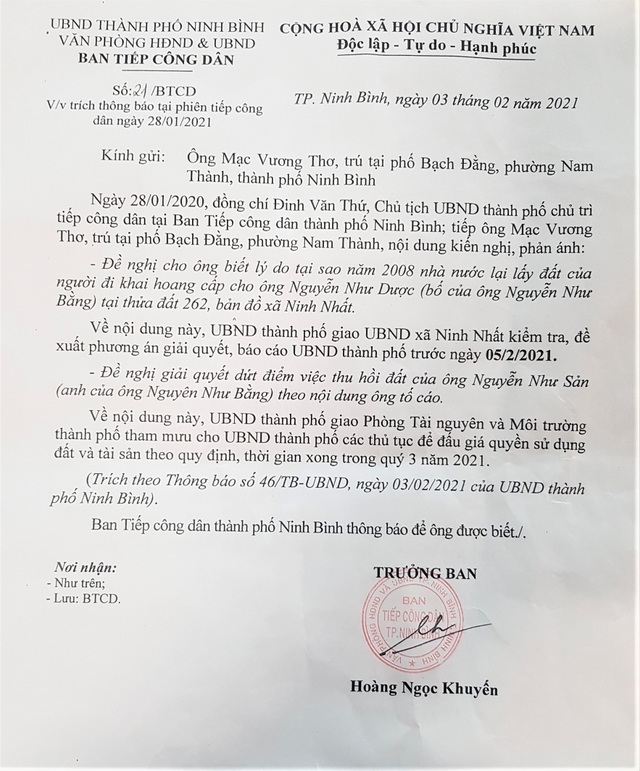 UBND THÀNH PHỐ NINH BÌNH
VĂN PHÒNG HĐND & UBND
BAN TIẾP CÔNG DÂN
CỘNG HOÀ XÃ HỘI CHỦ NGHĨA VIỆT NAM
Độc lập - Tự do - Hạnh phúc
Số: 21 /BTCD
V/v trích thông báo tại phiên tiếp công
dân ngày 28/01/2021
TP. Ninh Bình, ngày 03 tháng 02 năm 2021
Kính gửi: Ông Mạc Vương Thơ, trú tại phố Bạch Đằng, phường Nam
Thành, thành phố Ninh Bình
Ngày 28/01/2020, đồng chí Đinh Văn Thứ, Chủ tịch UBND thành phố chủ trì
tiếp công dân tại Ban Tiếp công dân thành phố Ninh Bình; tiếp ông Mạc Vương
Thơ, trú tại phố Bạch Đằng, phường Nam Thành, nội dung kiến nghị, phản ánh:
- Đề nghị cho ông biết lý do tại sao năm 2008 nhà nước lại lấy đất của
người đi khai hoang cấp cho ông Nguyễn Như Dược (bố của ông Nguyễn Như
Bằng) tại thửa đất 262, bản đồ xã Ninh Nhất.
Về nội dung này, UBND thành phố giao UBND xã Ninh Nhất kiểm tra, đề
xuất phương án giải quyết, báo cáo UBND thành phố trước ngày 05/2/2021.
- Đề nghị giải quyết dứt điểm việc thu hồi đất của ông Nguyễn Như Sản
(anh của ông Nguyên Như Bằng) theo nội dung ông tố cáo.
Về nội dung này, UBND thành phố giao Phòng Tài nguyên và Môi trường
thành phố tham mưu cho UBND thành phố các thủ tục để đấu giá quyền sử dụng
đất và tài sản theo quy định, thời gian xong trong quý 3 năm 2021.
(Trích theo Thông báo số 46/TB-UBND, ngày 03/02/2021 của UBND thành
phố Ninh Bình).
Ban Tiếp công dân thành phố Ninh Bình thông báo để ông được biết./.
Nơi nhận:
- Như trên;
- Lưu: BTCD.
TRƯỞNG BAN
VĂN PHÒNG HĐND VÀ UBND TP. NINH BÌNH
BAN
TIẾP CÔNG DÂN
TP.NINH BÌNH
Hoàng Ngọc Khuyến